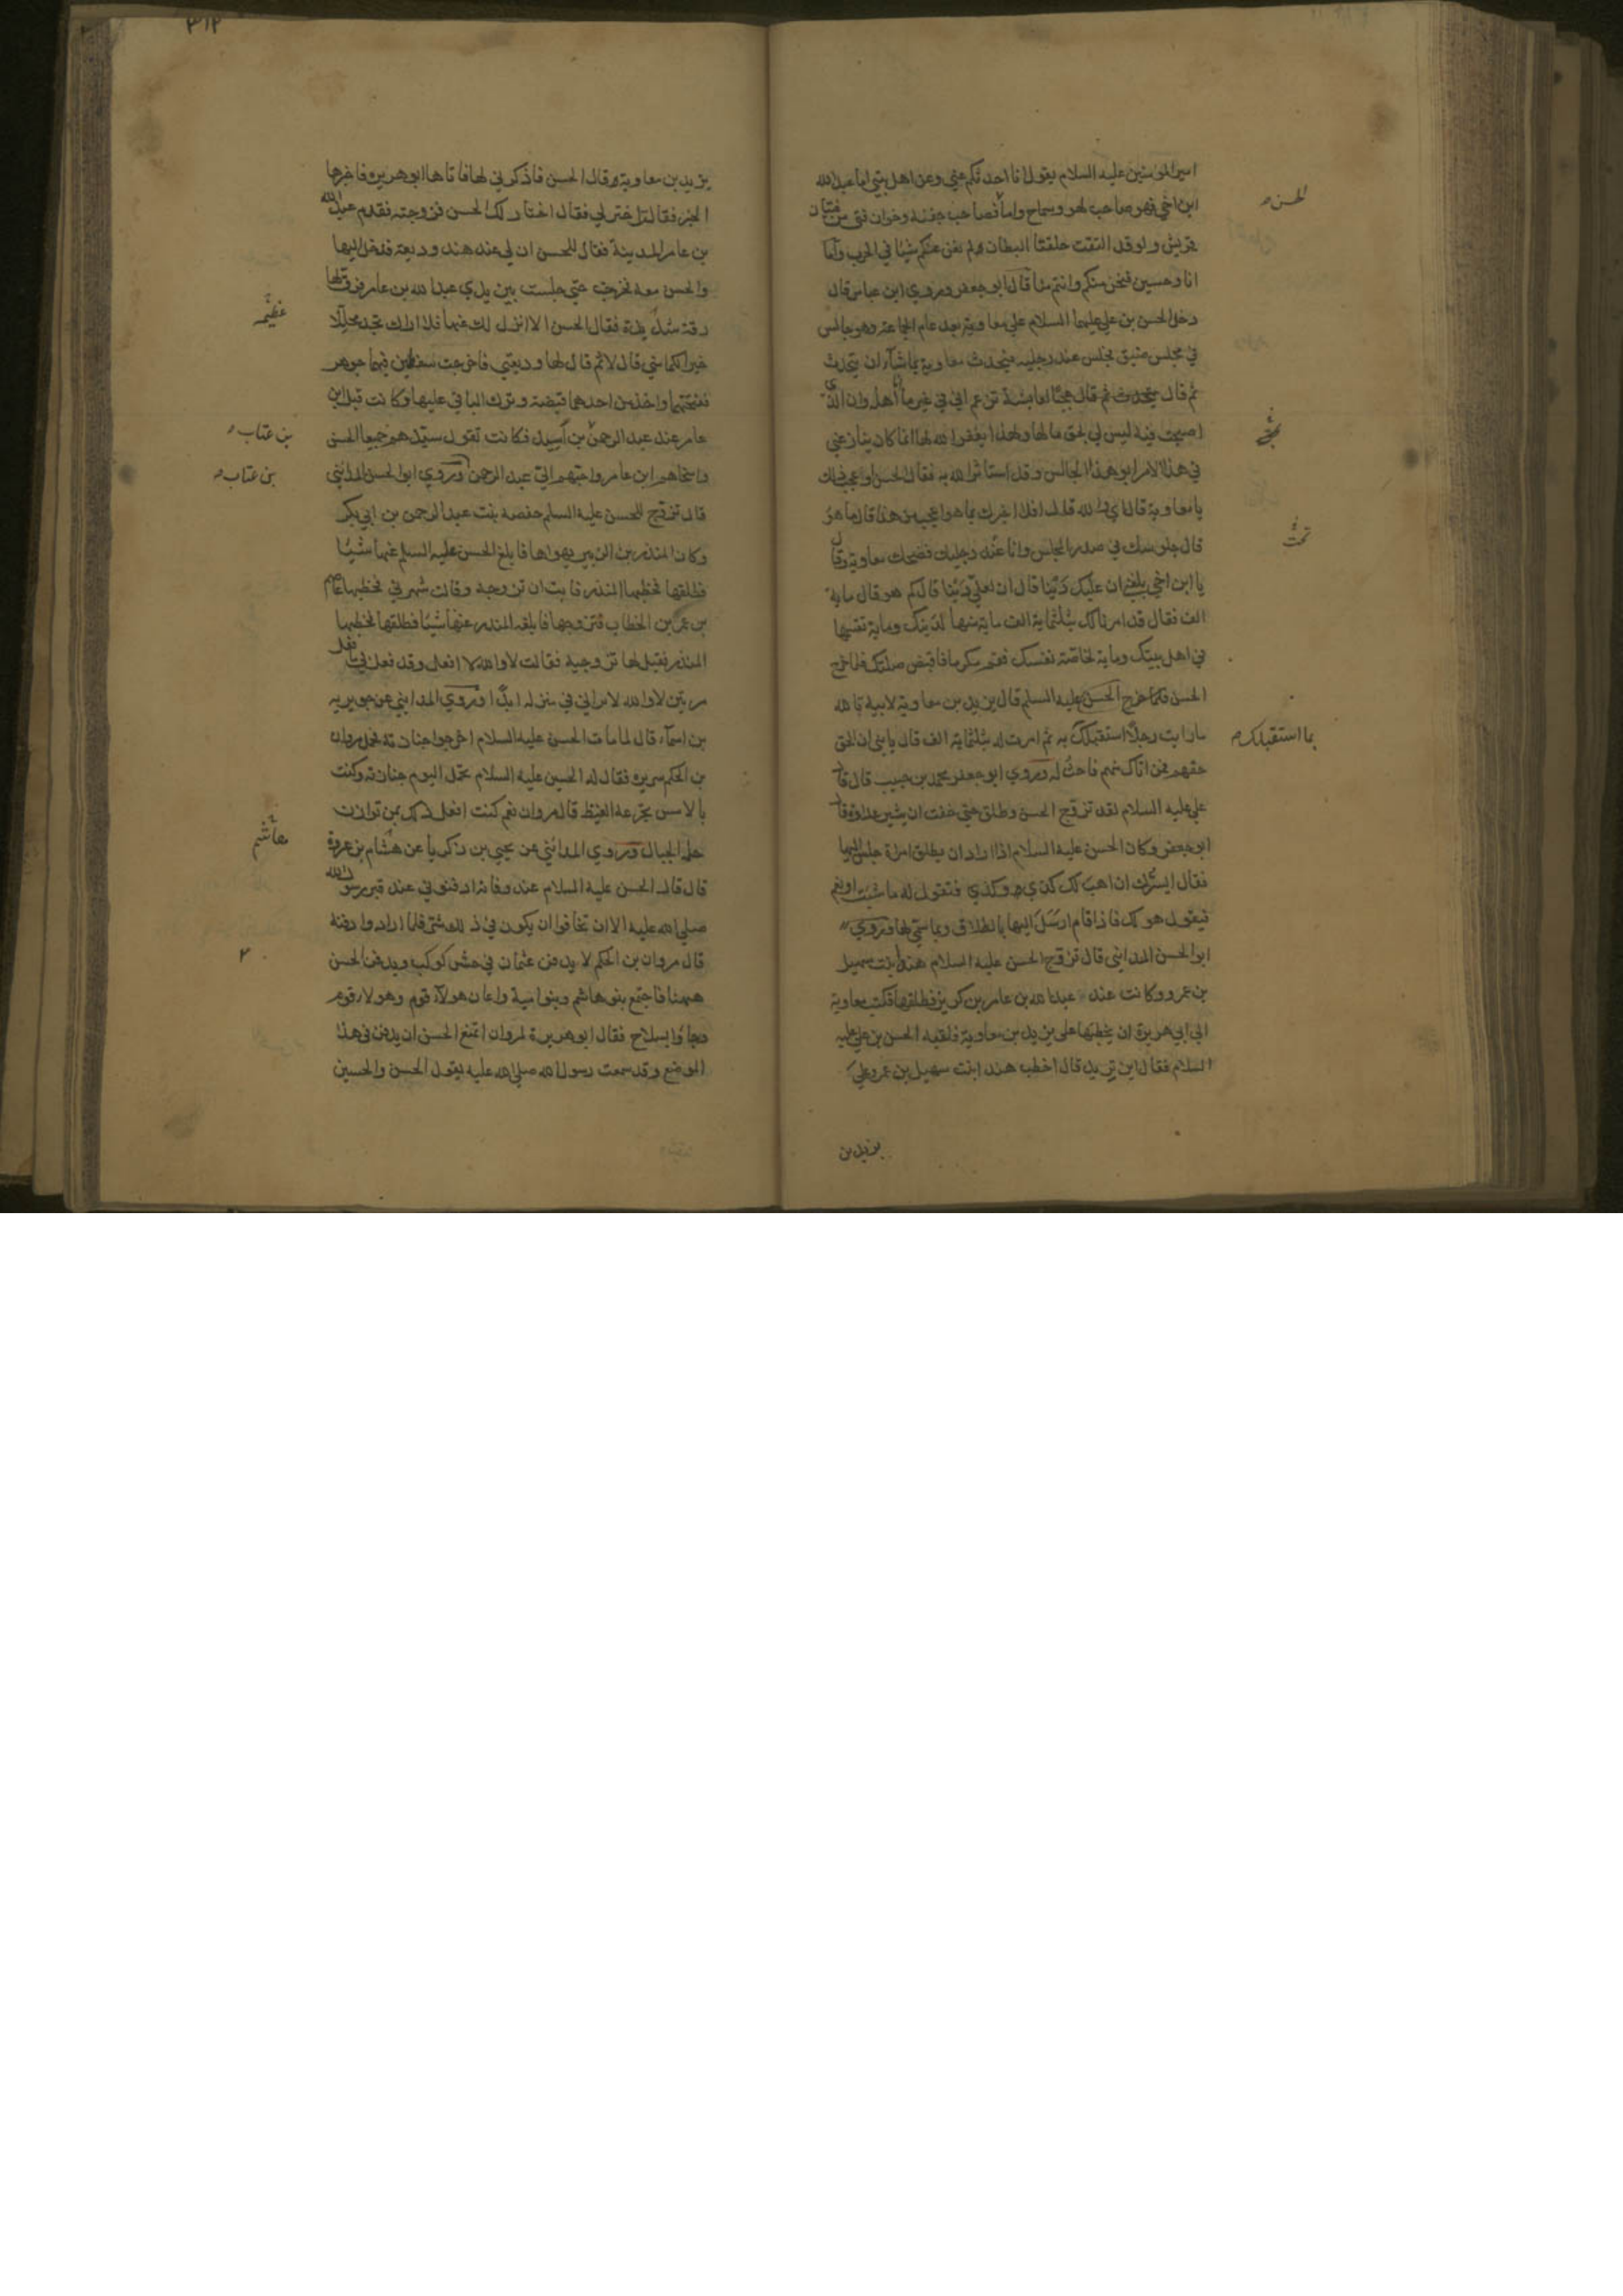 امير المؤمنين عليه السلام يقول انا احدثكم عني وعن اهل بيتي اما عبد الله
ابن اخي فهو صاحب لهو وسماح واما فصاحب جفنة وخوان فتى من فتيان
الحسن
قريش ولو قد التقت حلقتا البطان لم يغن عنكم شيئا في الحرب واما
انا وحسين فنحن منكم وانتم منا قال ابو جعفر وروي ابن عباس قال
دخل الحسن بن علي عليهما السلام على معاوية بعد عام الجماعة وهو جالس
في مجلس ضيق فجلس عند رجليه فيحدث معاوية بما شاء ان يتحدث
ثم قال عجبا لعايشة تزعم اني في غير ما انا اهله وان الذي
اصبحت فيه ليس لي بحق ما لها ولهذا يغفر الله لها انما كان ينازعني
في هذا الامر ابو هذا الجالس وقد استأثر الله به فقال الحسن او عجب ذلك
يا معاوية قال اي والله قال افلا اخبرك بما هو اعجب من هذا قال ما هو
قال جلوسك في صدر المجلس وانا عند رجليك فضحك معاوية وقال
يا ابن اخي بلغني ان عليك دينا قال ان لعلي دينا قال كم هو قال ماية
الف فقال قد امرنا لك بثلثماية الف ماية منها لدينك وماية تقسمها
في اهل بيتك وماية لخاصة نفسك فقم مكرما فاقبض صلتك فلما خرج
الحسن فلما خرج الحسن عليه السلم قال يزيد بن معاوية لابيه تالله
ما رايت رجلا استقبلك به ثم امرت له بثلثماية الف قال يا بني ان الحق
بما استقبلك
حقهم فمن اتاك منهم فاحث له وروي ابو جعفر محمد بن حبيب قال قال
علي عليه السلام لقد تزوج الحسن وطلق حتى خفت ان يثير عداوة قال
ابو جعفر وكان الحسن عليه السلام اذا اراد ان يطلق امراة جلس اليها
فقال ايسرك ان اهب لك كذي وكذي فتقول له ما شئت او نعم
فيقول هو لك فاذا قام ارسل اليها بالطلاق وبما سمى لها وروي
ابو الحسن المدايني قال تزوج الحسن عليه السلام هندا بنت سهيل
بن عمرو وكانت عند عبد الله بن عامر بن كريز فطلقها فكتب معاوية
الى ابي هريرة ان يخطبها على يزيد بن معاوية فلقيه الحسن بن علي عليه
السلام فقال اين تريد قال اخطب هند ابنت سهيل بن عمرو علي
يزيد بن
٣١٢
يزيد بن معاوية قال الحسن فاذكرني لها فاتاها ابو هريرة فاخبرها
الخبر فقالت اختر لي فقال اختار لك الحسن فزوجته فقدم عبد الله
بن عامر المدينة فقال للحسن ان لي عند هند وديعة فدخل اليها
والحسن معه فخرجت حتى جلست بين يدي عبد الله بن عامر فرق لها
رقة شديدة فقال الحسن الا انزل لك عنها فلا اراك تجد محللا
عظيمة
خيرا لكما مني قال لا ثم قال لها وديعتي فاخرجت سفطين فيهما جوهر
ففتحهما واخذ من احدهما قبضة وترك الباقي عليها وكانت قبل ابن
عامر عند عبد الرحمن بن اسيد فكانت تقول سيدهم جميعا الحسن
بن عتاب
واسخاهم ابن عامر واحبهم الي عبد الرحمن وروي ابو الحسن المدائني
بن عتاب
قال تزوج الحسن عليه السلم حفصة بنت عبد الرحمن بن ابي بكر
وكان المنذر بن الزبير يهواها فابلغ الحسن عليه السلم عنها شيئا
فطلقها فخطبها المنذر فابت ان تزوجه وقالت شهرني فخطبها عاصم
بن عمر بن الخطاب فتزوجها فابلغه المنذر عنها شيئا فطلقها فخطبها
المنذر فقيل لها تزوجيه فقالت لا والله لا افعل وقد فعل بي ما فعل
مرتين لا والله لا يراني في منزله ابدا وروي المدايني عن جويريه
بن اسماء قال لما مات الحسن عليه السلام اخرجوا جنازته فحمل مروان
بن الحكم سريره فقال له الحسين عليه السلام تحمل اليوم جنازته وكنت
بالامس تجرعه الغيظ قال مروان نعم كنت افعل ذلك بمن توازن
حلمه الجبال وروي المدائني عن يحيى بن زكريا عن هشام بن عروة
هاشم
قال قال الحسن عليه السلام عند وفاته ادفنوني عند قبر رسول الله
صلى الله عليه الا ان تخافوا ان يكون في ذلك شر فلما ارادوا دفنه
قال مروان بن الحكم لا يدفن عثمان في حش كوكب ويدفن الحسن
ههنا فاجتمع بنو هاشم وبنو امية واعان هولاء قوم وهولاء قوم
وجاؤا بسلاح فقال ابو هريرة لمروان اتمنع الحسن ان يدفن في هذا
الموضع وقد سمعت رسول الله صلى الله عليه يقول الحسن والحسين